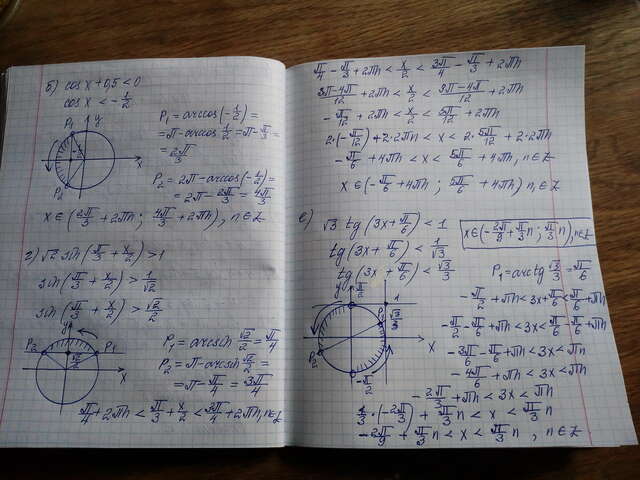 б) cos x + 0,5 < 0
cos x < -1/2
P₁ = arccos(-1/2) =
= π - arccos 1/2 = π - π/3 =
= 2π/3
P₂ = 2π - arccos(-1/2) =
= 2π - 2π/3 = 4π/3
P₁
y
-1/2
x
P₂
x ∈ (2π/3 + 2πn; 4π/3 + 2πn), n ∈ Z
г) √2 sin(π/3 + x/2) > 1
sin(π/3 + x/2) > 1/√2
sin(π/3 + x/2) > √2/2
P₁ = arcsin √2/2 = π/4
P₂ = π - arcsin √2/2 =
= π - π/4 = 3π/4
y
P₂
P₁
√2/2
x
π/4 + 2πn < π/3 + x/2 < 3π/4 + 2πn, n ∈ Z
π/4 - π/3 + 2πn < x/2 < 3π/4 - π/3 + 2πn
3π-4π/12 + 2πn < x/2 < 9π-4π/12 + 2πn
-π/12 + 2πn < x/2 < 5π/12 + 2πn
2·(-π/12) + 2·2πn < x < 2·5π/12 + 2·2πn
-π/6 + 4πn < x < 5π/6 + 4πn, n ∈ Z
x ∈ (-π/6 + 4πn; 5π/6 + 4πn) n, ∈ Z
е) √3 tg(3x + π/6) < 1
tg(3x + π/6) < 1/√3
tg(3x + π/6) < √3/3
x ∈ (-2π/9 + π/3 n; π/3 n), n ∈ Z
P₁ = arctg √3/3 = π/6
y
π/2
1
√3/3
P₁
x
P₂
-π/2
-π/2 + πn < 3x + π/6 < π/6 + πn
-π/2 - π/6 + πn < 3x < π/6 - π/6 + πn
-3π/6 - π/6 + πn < 3x < πn
-4π/6 + πn < 3x < πn
-2π/3 + πn < 3x < πn
1/3·(-2π/3) + π/3 n < x < π/3 n
-2π/9 + π/3 n < x < π/3 n, n ∈ Z